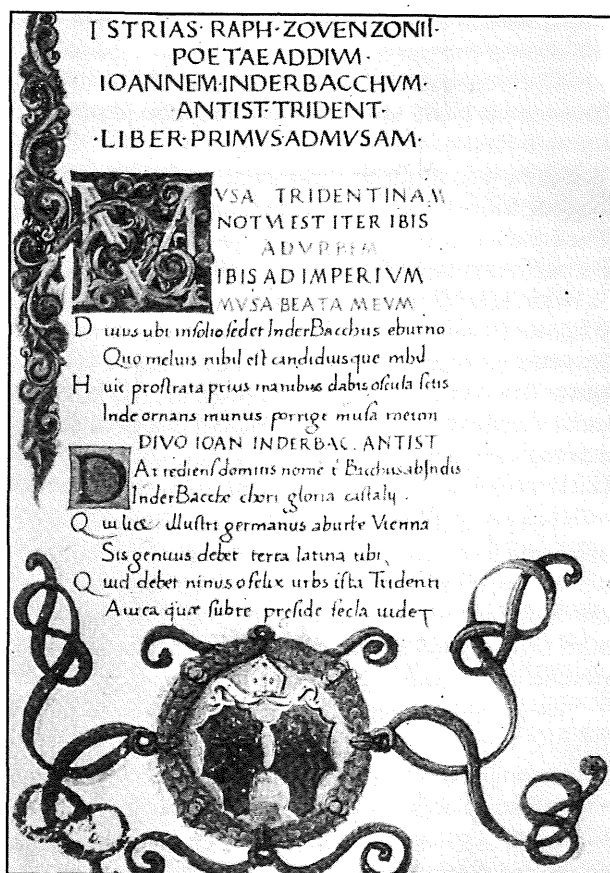 ISTRIAS·RAPH·ZOVENZONII·
POETAE AD DIVM·
IOANNEM·INDERBACCHVM·
ANTIST·TRIDENT·
·LIBER·PRIMVS·AD MVSAM·
MVSA TRIDENTINAM
NOTVM EST ITER IBIS
AD VRBEM
IBIS AD IMPERIVM
MVSA BEATA MEVM
Diuus ubi in solio sedet InderBacchus eburno
Quo melius nihil est candidiusque nihil
Huic prostrata prius manibus dabis oscula
Inde ornans munus porrige musa meum
DIVO IOAN INDERBAC. ANTIST
DAt rediens domitis nomē ī Bacchus ab Indis
InderBacche chori gloria castalij.
Qui licet illustri germanus ab urbe Vienna
Sis genitus debet terra latina tibi
Quid debet o felix urbs ista Tridenti
Aurea quæ sub te preside secla uideT